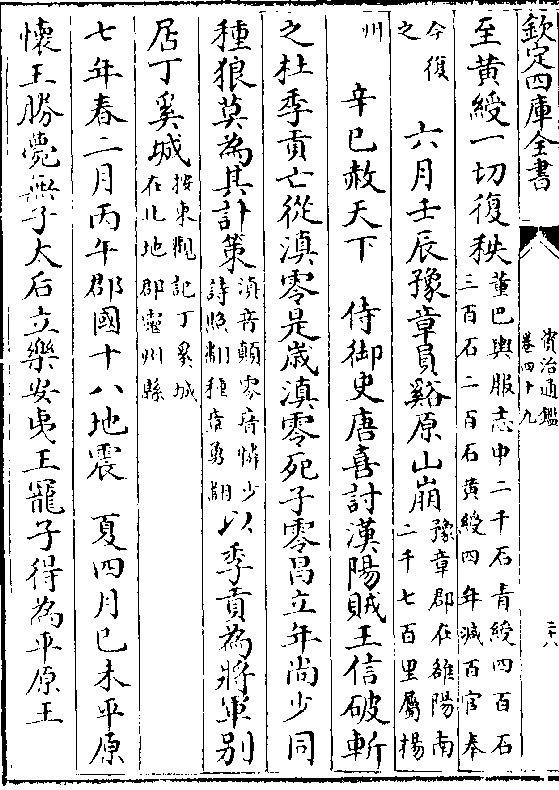 欽定四庫全書
資治通鑑
卷四十九
二十八
至黃綬一切復秩董巴輿服志中二千石青綬四百石
三百石二百石黃綬四年減百官奉
今復
之 六月壬辰豫章員谿原山崩豫章郡在雒陽南
二千七百里屬楊
州 辛巳赦天下 侍御史唐喜討漢陽賊王信破斬
之杜季貢亡從滇零是歲滇零死子零昌立年尚少同
種狼莫為其計策滇音顛零音憐少
詩照翻種章勇翻以季貢為將軍别
居丁奚城按東觀記丁奚城
在北地郡靈州縣
七年春二月丙午郡國十八地震 夏四月巳未平原
懷王勝薨無子太后立樂安夷王寵子得為平原王